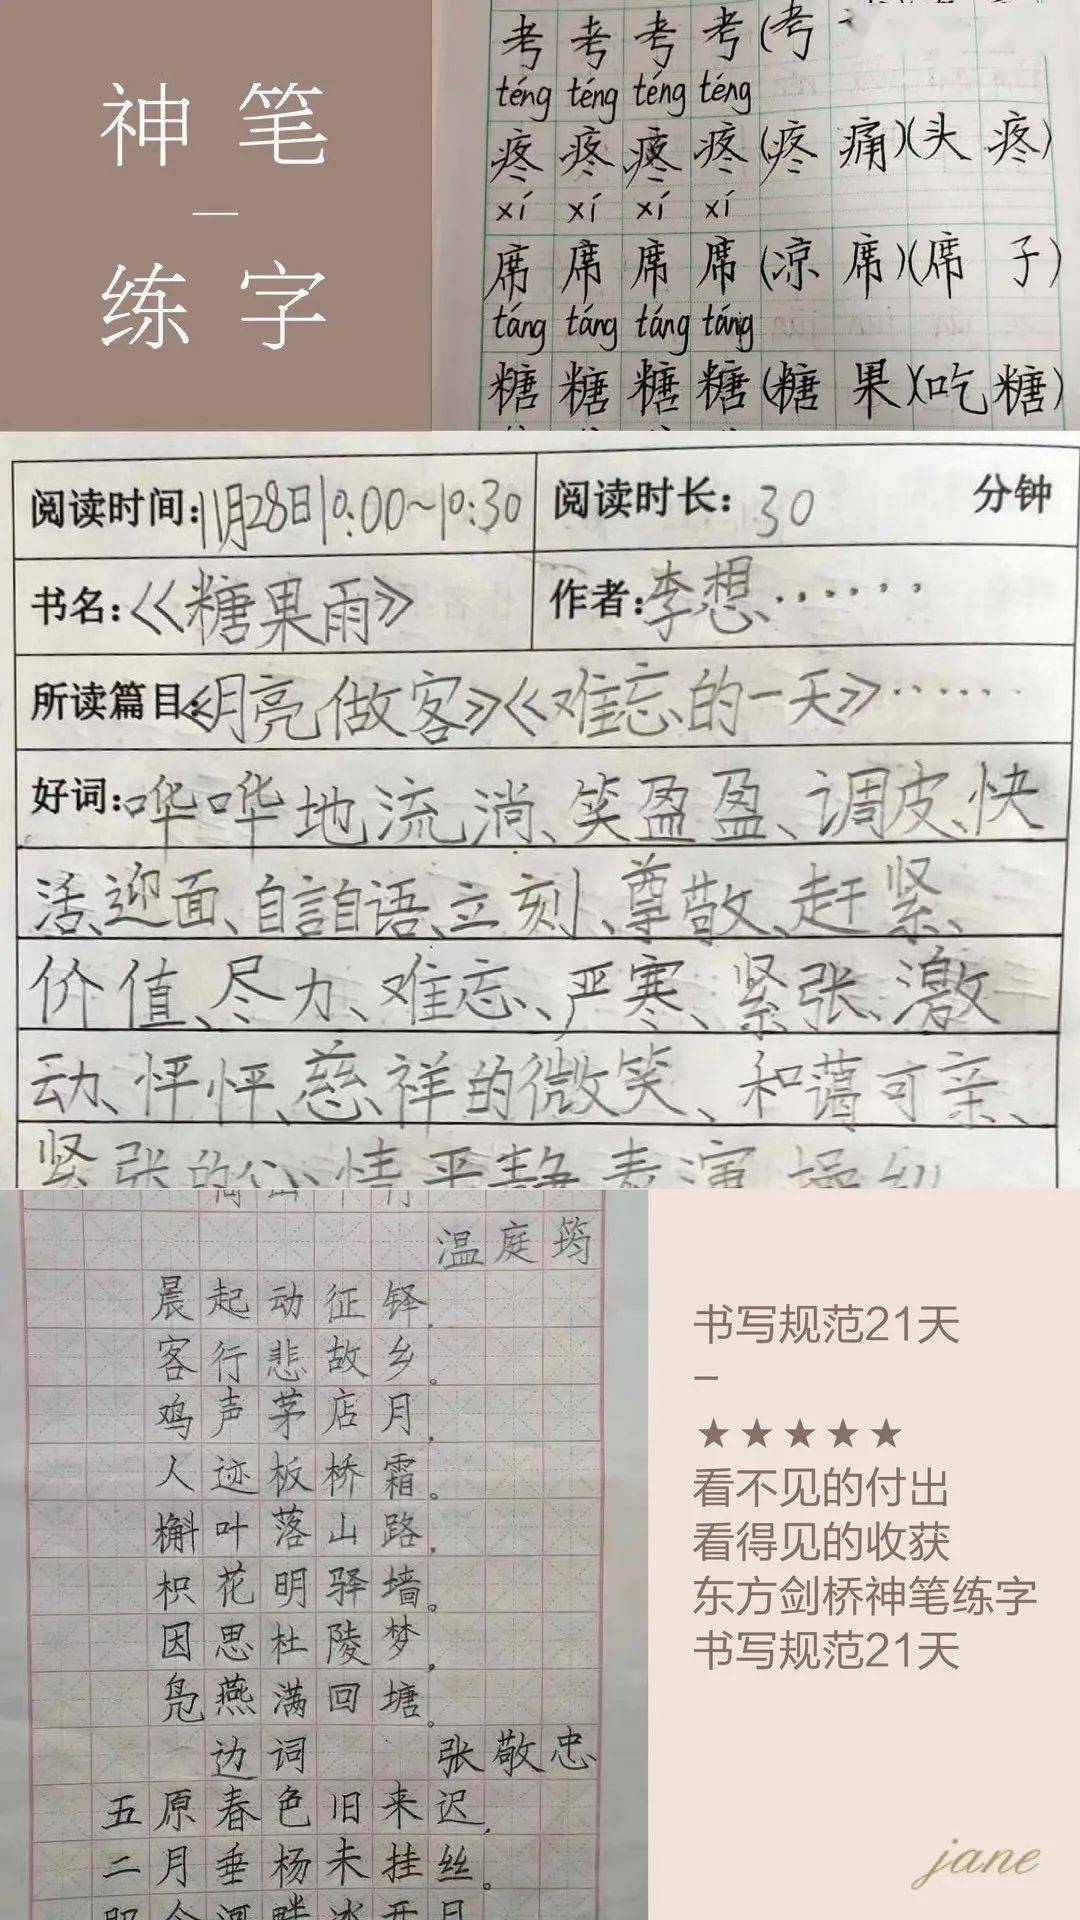 神笔
—
练字
考 考 考 考 (考
téng téng téng téng
疼 疼 疼 疼 (疼 痛)(头 疼)
xí xí xí xí
席 席 席 席 (凉 席)(席 子)
táng táng táng táng
糖 糖 糖 糖 (糖 果)(吃 糖)
阅读时间:11月28日10:00~10:30 阅读时长:30 分钟
书名:《糖果雨》 作者:李想……
所读篇目:《月亮做客》《难忘的一天》……
好词:哗哗地流淌、笑盈盈、调皮、快
活、迎面、自言自语、立刻、尊敬、赶紧、
价值、尽力、难忘、严寒、紧张、激
动、怦怦、慈祥的微笑、和蔼可亲、
紧张的心情平静表演
温庭筠
晨起动征铎,
客行悲故乡。
鸡声茅店月,
人迹板桥霜。
槲叶落山路,
枳花明驿墙。
因思杜陵梦,
凫燕满回塘。
边词 张敬忠
五原春色旧来迟,
二月垂杨未挂丝。
即今河畔冰开日
书写规范21天
–
★★★★★
看不见的付出
看得见的收获
东方剑桥神笔练字
书写规范21天
jane